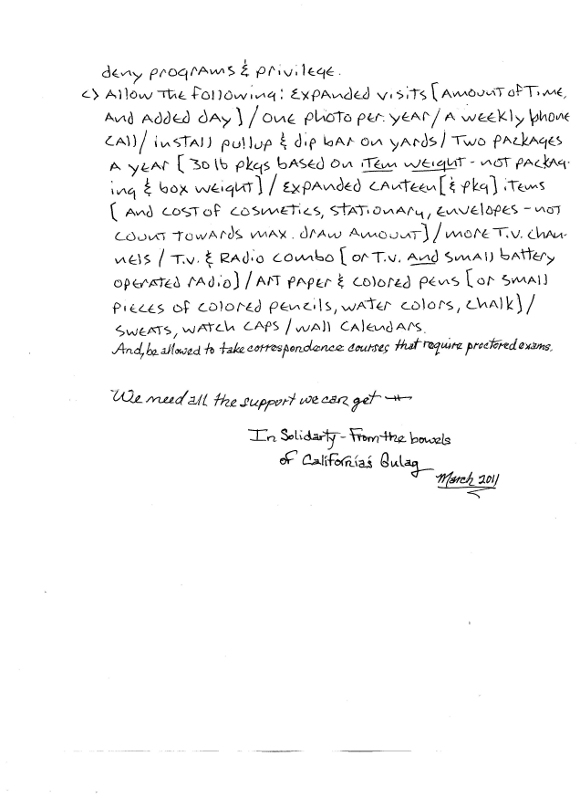 deny programs & privilege.
c) Allow the following: Expanded visits [amount of time,
and added day] / one photo per year / a weekly phone
call / install pullup & dip bar on yards / Two packages
a year [30 lb pkgs based on item weight - not packag-
ing & box weight] / expanded canteen [& pkg] items
[and cost of cosmetics, stationary, envelopes - not
count towards max. draw amount] / more T.V. chan-
nels / T.V. & Radio combo [or T.V. and small battery
operated radio] / art paper & colored pens [or small
pieces of colored pencils, water colors, chalk] /
sweats, watch caps / wall calendars.
And, be allowed to take correspondence courses that require proctored exams.
"We need all the support we can get
In Solidarty - From the bowels
of California's Gulag
March 2011